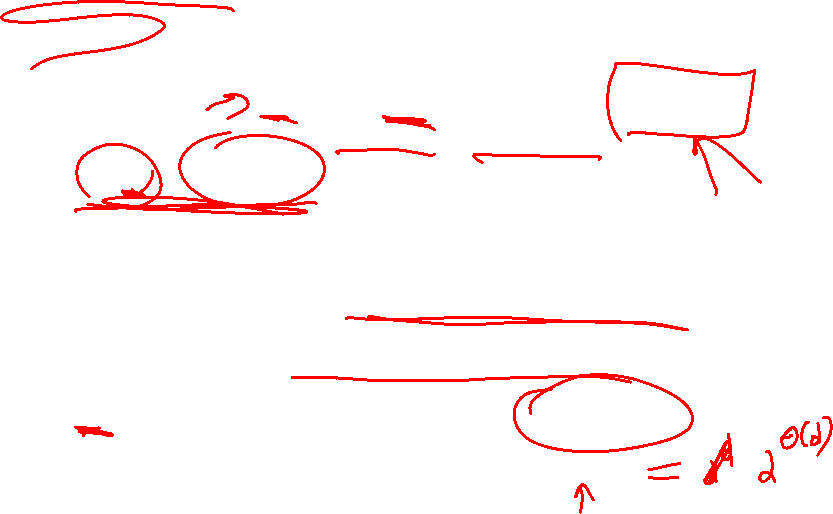 = 2^{Θ(d)}